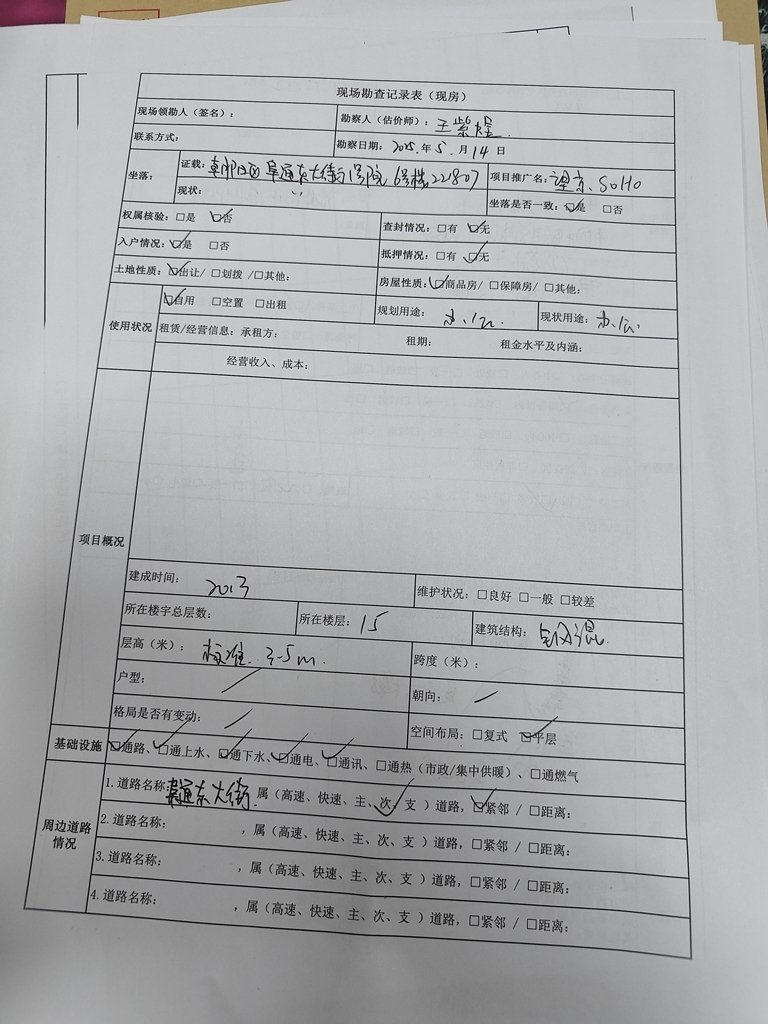 现场勘查记录表（现房）
现场领勘人（签名）： 勘察人（估价师）：王紫煜
联系方式： 勘察日期：2025.年5.月14日
坐落： 证载：朝阳区阜通东大街1号院6号楼22807 项目推广名：望京SOHO
现状： 〃 坐落是否一致：☑是 □否
权属核验：□是 ☑否 查封情况：□有 ☑无
入户情况：☑是 □否 抵押情况：□有 ☑无
土地性质：☑出让/ □划拨 /□其他： 房屋性质：☑商品房/ □保障房/ □其他：
使用状况 ☑自用 □空置 □出租 规划用途：办公 现状用途：办公
租赁/经营信息：承租方： 租期： 租金水平及内涵：
经营收入、成本：
项目概况
建成时间：2013 维护状况：□良好 □一般 □较差
所在楼宇总层数： 所在楼层：15 建筑结构：钢混
层高（米）：标准 3.5m. 跨度（米）：
户型：／ 朝向：／
格局是否有变动：／ 空间布局：□复式 ☑平层
基础设施 ☑通路、☑通上水、☑通下水、☑通电、☑通讯、□通热（市政/集中供暖）、□通燃气
周边道路情况 1.道路名称：阜通东大街，属（高速、快速、主、次✓、支 ）道路，☑紧邻 / □距离：
2.道路名称： ，属（高速、快速、主、次、支 ）道路，□紧邻 / □距离：
3.道路名称： ，属（高速、快速、主、次、支 ）道路，□紧邻 / □距离：
4.道路名称： ，属（高速、快速、主、次、支 ）道路，□紧邻 / □距离：